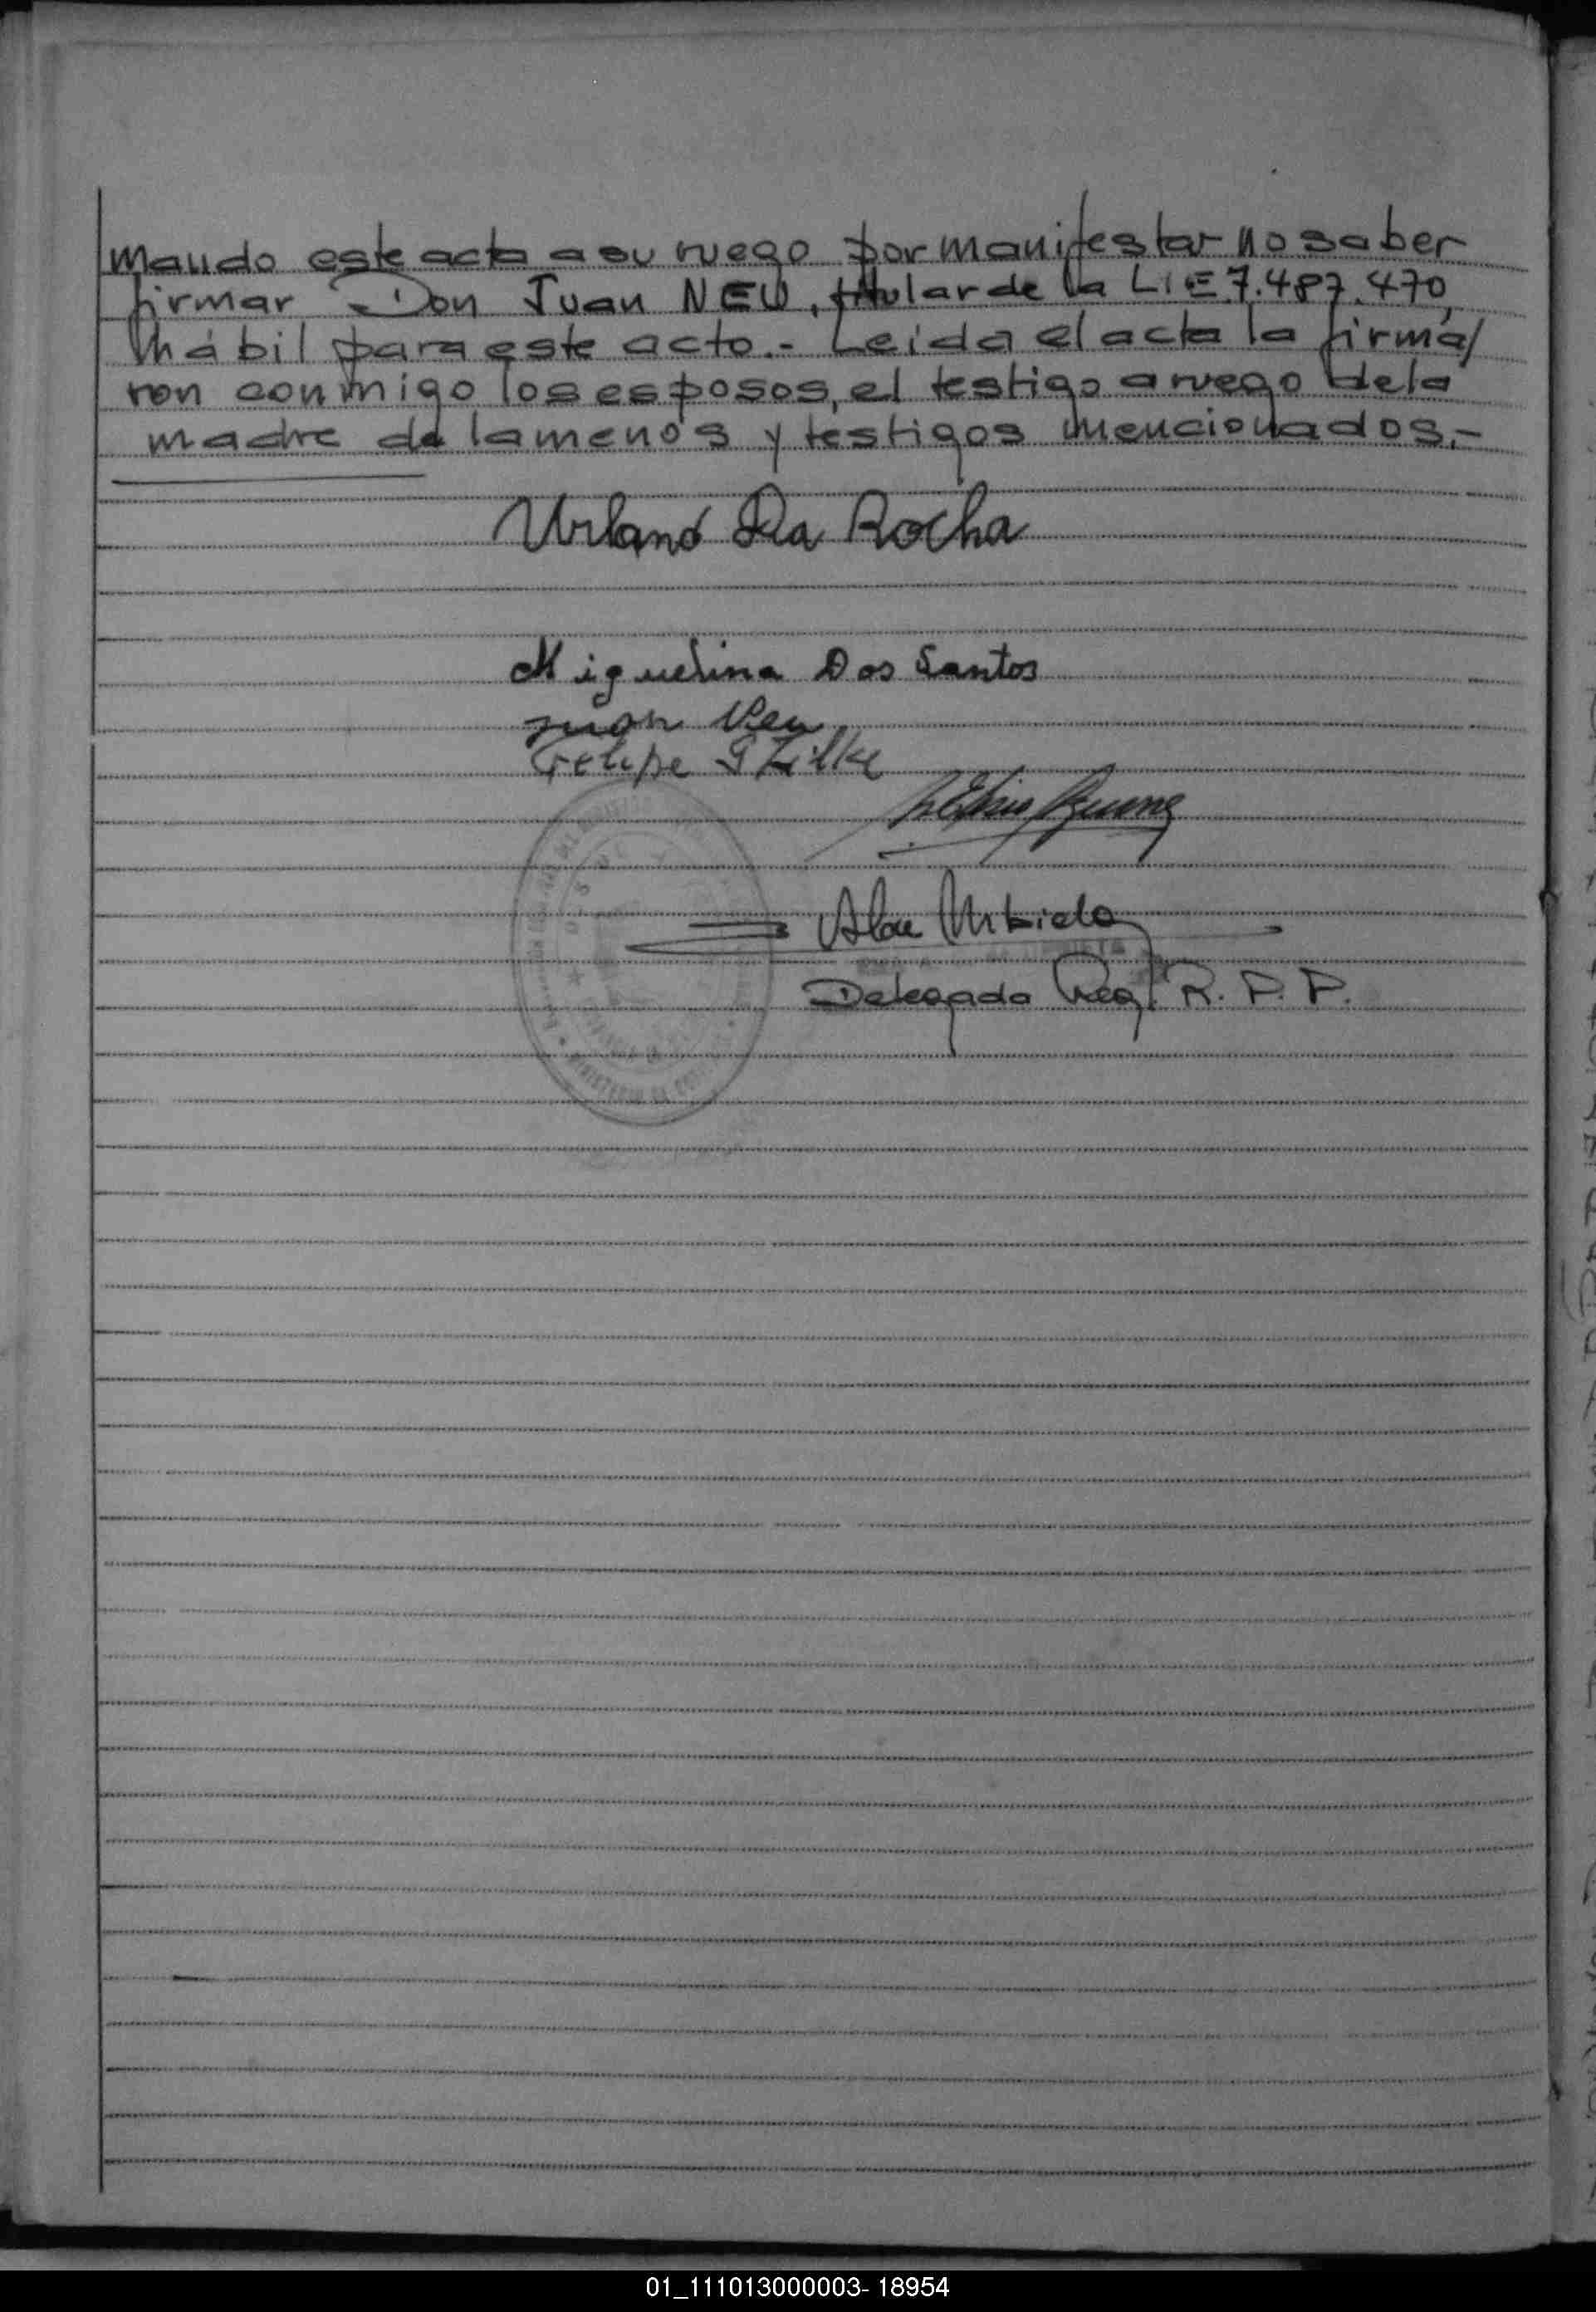 mando este acta a su ruego por manifestar no saber
firmar - Don Juan NEU, titular de la L.E 7.487.470,
hábil para este acto.- Leida el acta la firma/
ron conmigo los esposos, el testigo a ruego de la
madre de la menos y testigos mencionados.-
Urbano Da Rocha
Miguelina Dos Santos
Juan Neu
Felipe G Zilke
Delegada Reg. R. P. P.
01_111013000003- 18954